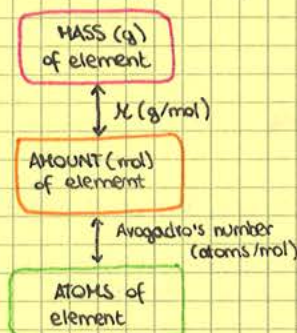 MASS (g)
of element
M (g/mol)
AMOUNT (mol)
of element
Avogadro's number
(atoms/mol)
ATOMS of
element